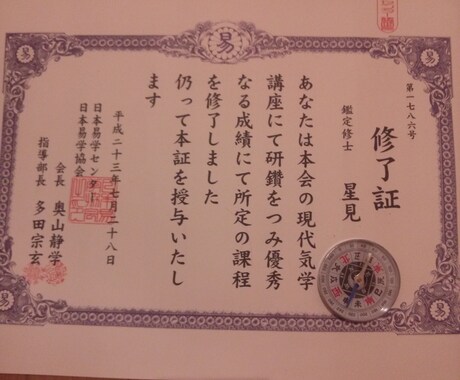 易
易
易
第一七八六号
修了証
鑑定修士 星見
あなたは本会の現代気学
講座にて研鑽をつみ優秀
なる成績にて所定の課程
を修了しました
仍って本証を授与いたし
ます
平成二十三年七月二十八日
日本易学センター
日本易学協会
会長 奥山静学
指導部長 多田宗玄
易
易